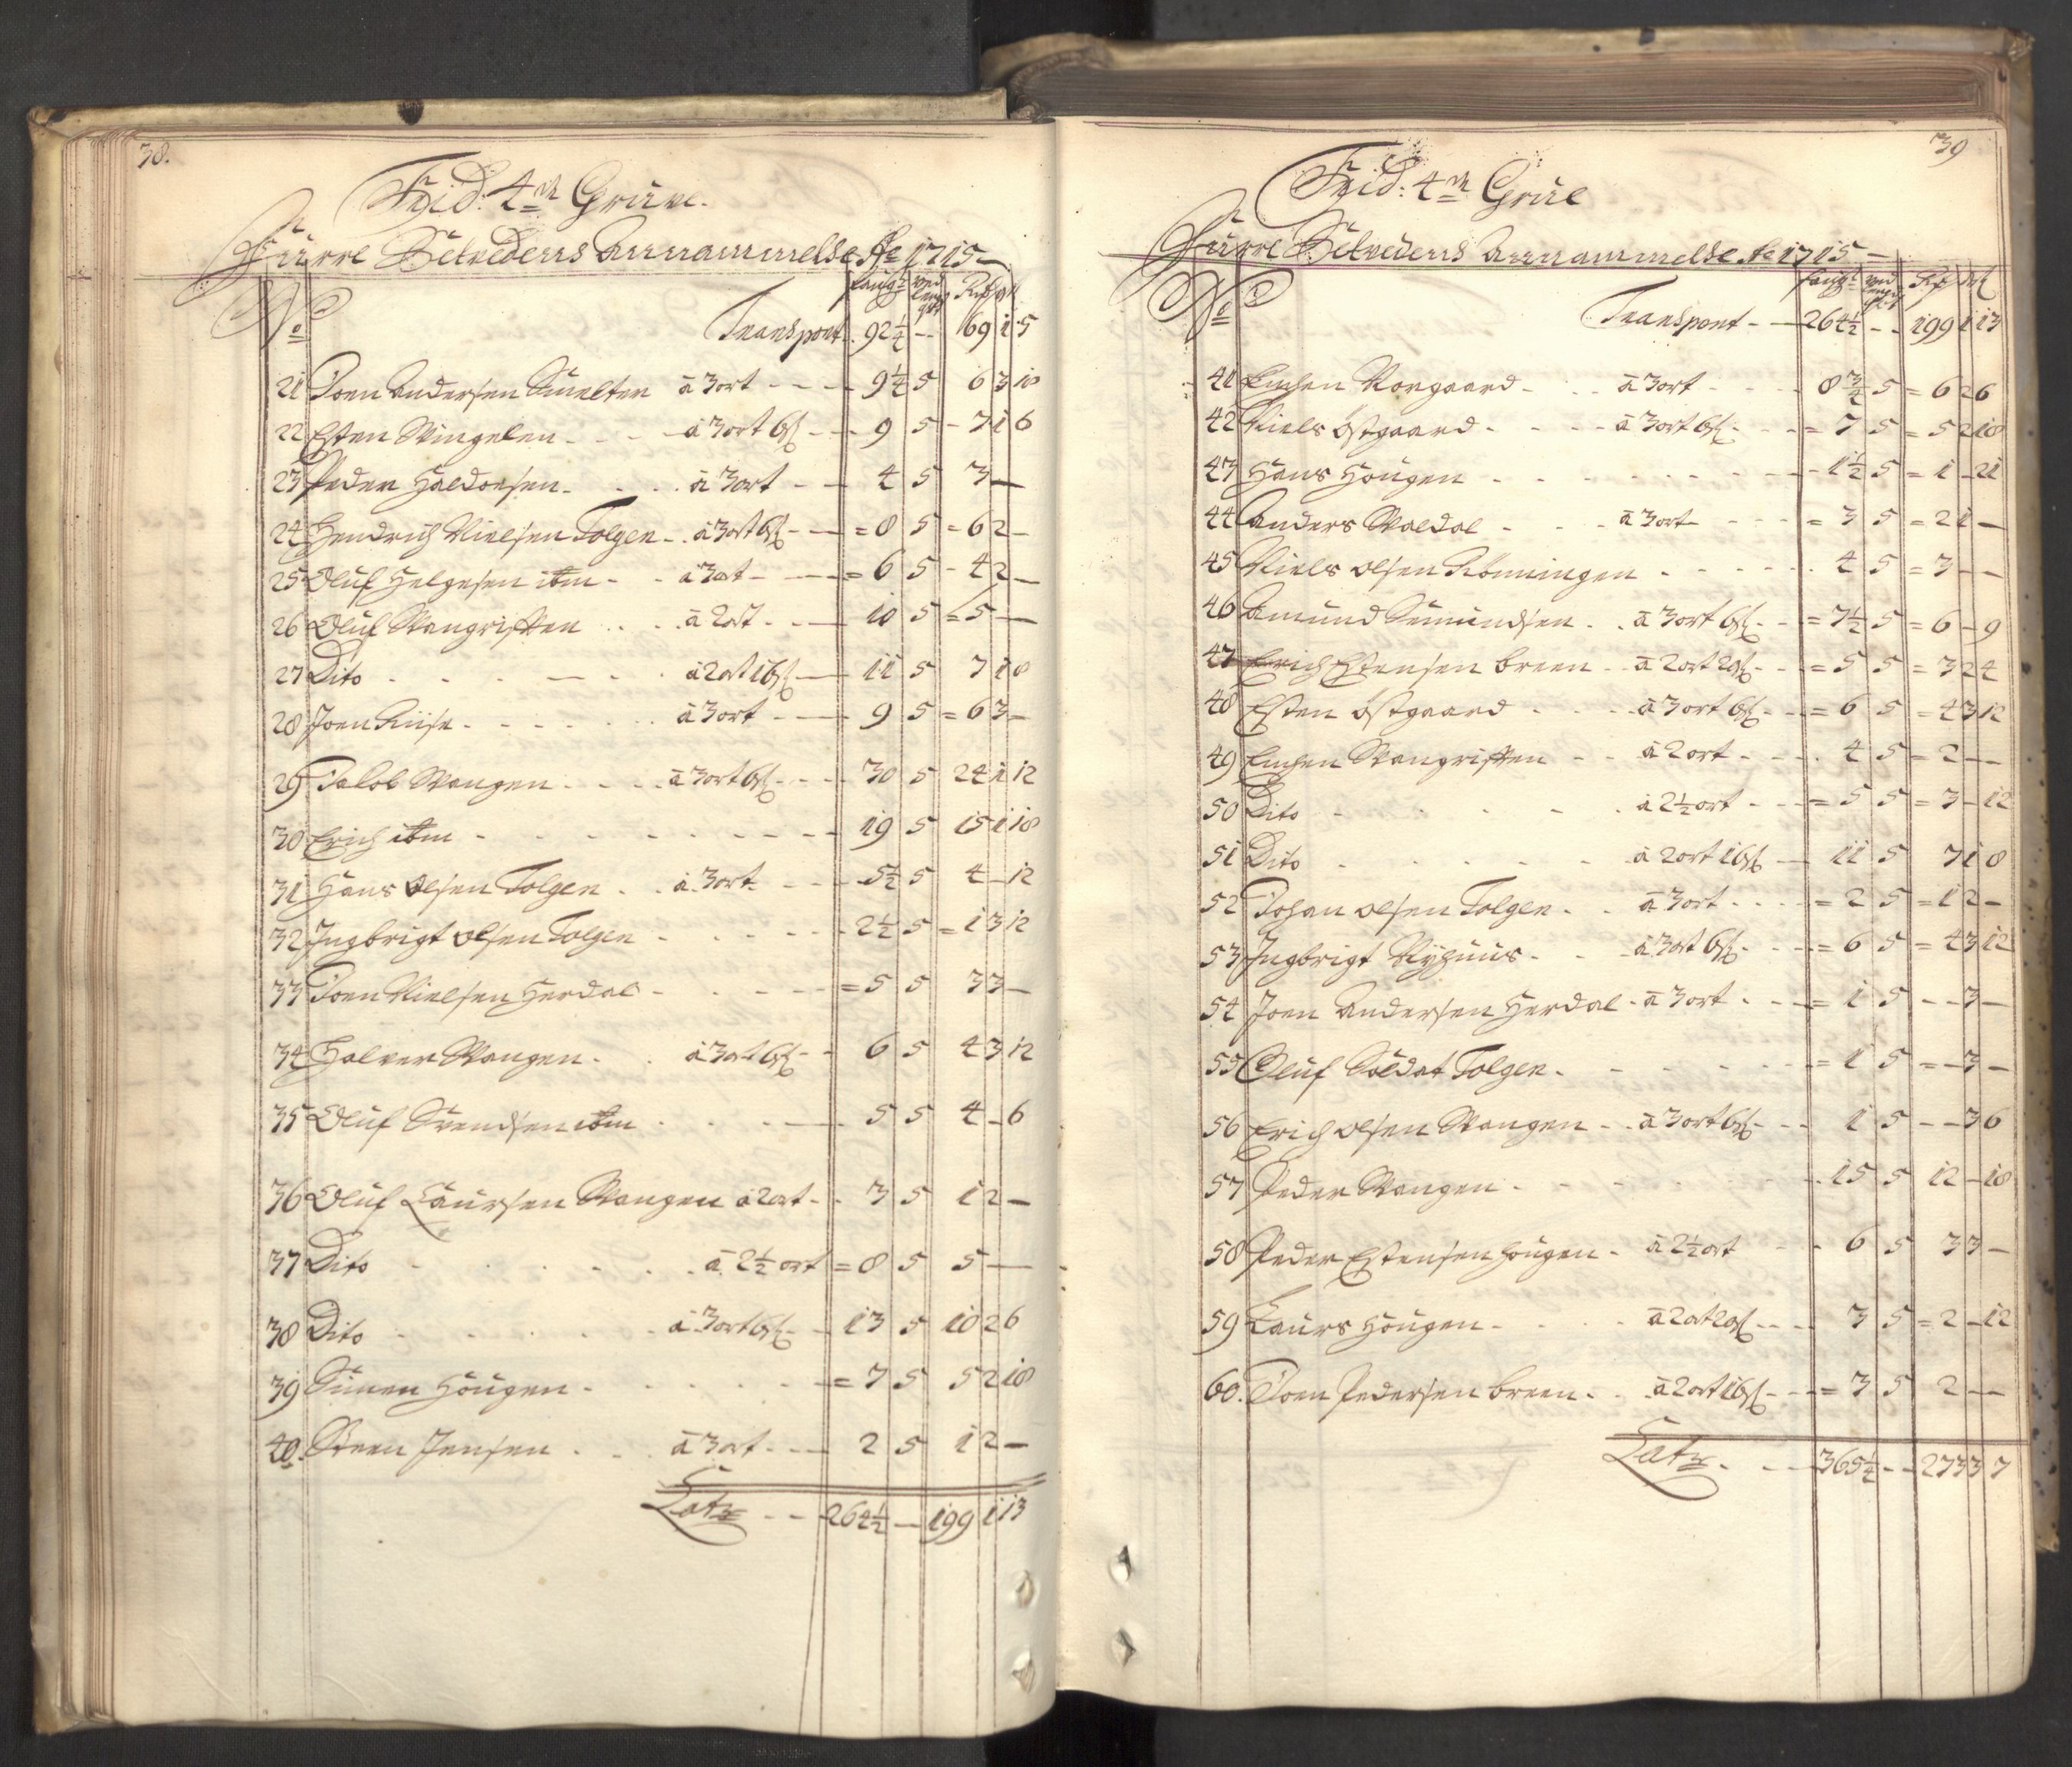 38.
Frid: 4de Gruve.
Furre Setvedens Annammelse Ao 1715
No
faug: ved leng: qvt: Rd ort ß
Transport. 92 1/4 -- 69 1 5
21 Joen Andersen Smelter à 3 ort --- 9 1/4 5 6 3 18
22 Esten Vingelen - - - à 3 ort 6ß -- 9 5 - 7 1 6
23 Peder Haldorsen - . . à 3 ort -- 4 5 3 —
24 Hendrich Nielsen Tolgen - . à 3 ort 6ß - = 8 5 = 6 2 -
25 Oluf Helgesen ibm - - à 3 ort - — = 6 5 - 4 2 -
26 Oluf Vangrøften . . à 2 ort - . — 10 5 = 5 —
27 Dito . . . . . à 2 ort 16ß — 11 5 7 1 8
28 Joen Riise . . . . . à 3 ort - — 9 5 = 6 3 -
29 Jacob Vangen . . . . à 3 ort 6ß - - - 30 5 24 1 12
30 Erich ibm - . . . . . - - - 19 5 15 1 18
31 Hans Olsen Tolgen . . à 3 ort - - - 5 1/2 5 4 - 12
32 Ingbrigt Olsen Tolgen . . . . . - 2 1/2 5 = 1 3 12
33 Joen Nielsen Herdal - . . . - - = 5 5 3 3 -
34 Halver Vangen . . à 3 ort 6ß - - 6 5 4 3 12
35 Oluf Svendsen ibm . . . . — 5 5 4 - 6
36 Oluf Laursen Vangen à 2 ort - - 3 5 1 2 -
37 Dito . . . . . à 2 1/2 ort = 8 5 5 —
38 Dito . . . . . à 3 ort 6ß - - 13 5 10 2 6
39 Simen Hougen . . . . . . = 7 5 5 2 18
40. Steen Jensen . . à 3 ort - - - 2 5 1 2 -
Latr -- 264 1/2 — 199 1 13
39
Frid: 4de Grue
Furre Setvedens Annammelse Ao 1715
No
faug: ved leng: qt: Rd ort ß
Transport - — 264 1/2 -- 199 1 13
41 Emhen Norgaard - . . à 3 ort - - - - 8 3/4 5 = 6 2 6
42 Niels Østgaard - . . - à 3 ort 6ß - - = 7 5 = 5 2 18
43 Hans Hougen . . . . . . - - 1 1/2 5 = 1 - 21
44 Anders Valdal . . . à 3 ort - - - = 3 5 = 2 1 —
45 Niels Olsen Rønningen . . . . . . 4 5 = 3 — —
46 Amund Semundsen . . à 3 ort 6ß - - = 7 1/2 5 = 6 - 9
47 Erich Estensen Breen - - à 2 ort 20ß - - = 5 5 = 3 2 4
48 Esten Østgaard . . . à 3 ort 6ß - - = 6 5 = 4 3 12
49 Emhen Vangrøften - - à 2 ort - - - - 4 5 = 2 — —
50 Dito - . . . - à 2 1/2 ort - - = 5 5 = 3 - 12
51 Dito . . . . - à 2 ort 16ß — 11 5 7 1 8
52 Johan Olsen Tolgen . . à 3 ort - - - = 2 5 = 1 2 -
53 Ingbrigt Nyhuus - . - à 3 ort 6ß - - = 6 5 = 4 3 12
54 Joen Andersen Herdal - à 3 ort - - = 1 5 - - 3 -
55 Oluf Soldat Tolgen . - . - - . = 1 5 = - 3 -
56 Erich Olsen Vangen - . à 3 ort 6ß - - - 1 5 - - 3 6
57 Peder Vangen . . . . . . - 15 5 12 - 18
58 Peder Estensen Hougen - à 2 1/2 ort - - 6 5 3 3 -
59 Laurs Hougen - . . . à 2 ort 20ß - - - 3 5 = 2 - 12
60. Joen Pedersen Breen - . à 2 ort 16ß - - = 3 5 2 — —
Latr - - 365 1/4 - - 273 3 7